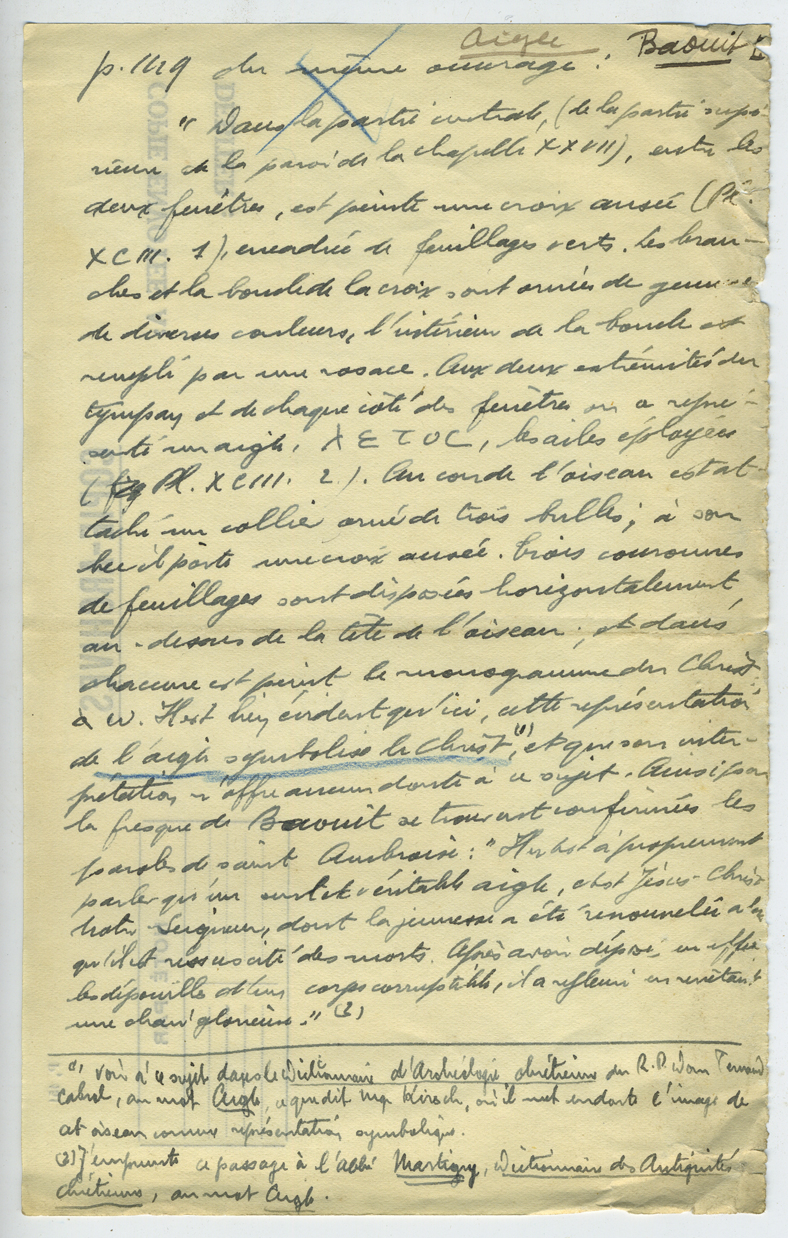 Aigle Baouit
p. 1129 du même ouvrage :
" Dans la partie centrale, (de la partie supé-
rieure de la paroi de la chapelle XXVII), entre les
deux fenêtres, est peinte une croix ansée (Pl.
XCIII. 1), encadrée de feuillages verts. Les bran-
ches et la boucle de la croix sont ornées de gemmes
de diverses couleurs, l'intérieur de la boucle est
rempli par une rosace. Aux deux extrémités du
tympan et de chaque côté des fenêtres on a repré-
senté un aigle, ⲗⲉⲧⲟⲥ, les ailes éployées
( Pl. XCIII. 2.). Au cou de l'oiseau est at-
taché un collier orné de trois bulles ; à son
bec il porte une croix ansée. Trois couronnes
de feuillages sont disposées horizontalement
au-dessus de la tête de l'oiseau ; et dans
chacune est peint le monogramme du Christ
à ω. Il est bien évident qu'ici, cette représentation
de l'aigle symbolise le Christ,(1) et que son inter-
prétation n'offre aucun doute à ce sujet. Ainsi par
la fresque de Baouit se trouvent confirmées les
paroles de saint Ambroise : " Il n'est à proprement
parler qu'un seul et véritable aigle, c'est Jésus-Christ
notre Seigneur, dont la jeunesse a été renouvelée alors
qu'il est ressuscité des morts. Après avoir déposé, en effet
les dépouilles d'un corps corruptible, il a refleuri en revêtant
une chair glorieuse." (2)
(1) voir à ce sujet dans le Dictionnaire d'Archéologie chrétienne du R.P. Dom Fernand
Cabrol, au mot Aigle, ce que dit Mgr Kirsch, où il met en doute l'image de
cet oiseau comme représentation symbolique.
(2) J'emprunte ce passage à l'abbé Martigny, Dictionnaire des Antiquités
chrétiennes, au mot Aigle.